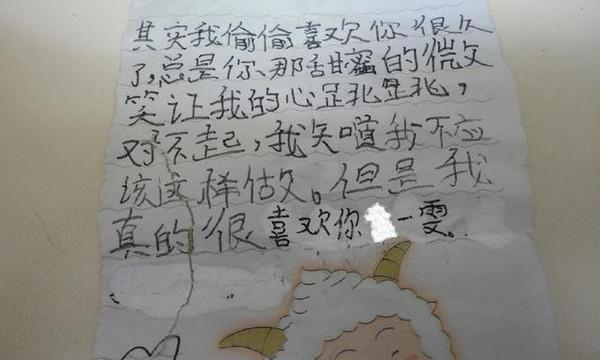 其实我偷偷喜欢你很久
了,总是你、那甜蜜的微
笑让我的心
对不起,我知道我不应
该这样做。但是我
真的很喜欢你 一雯。